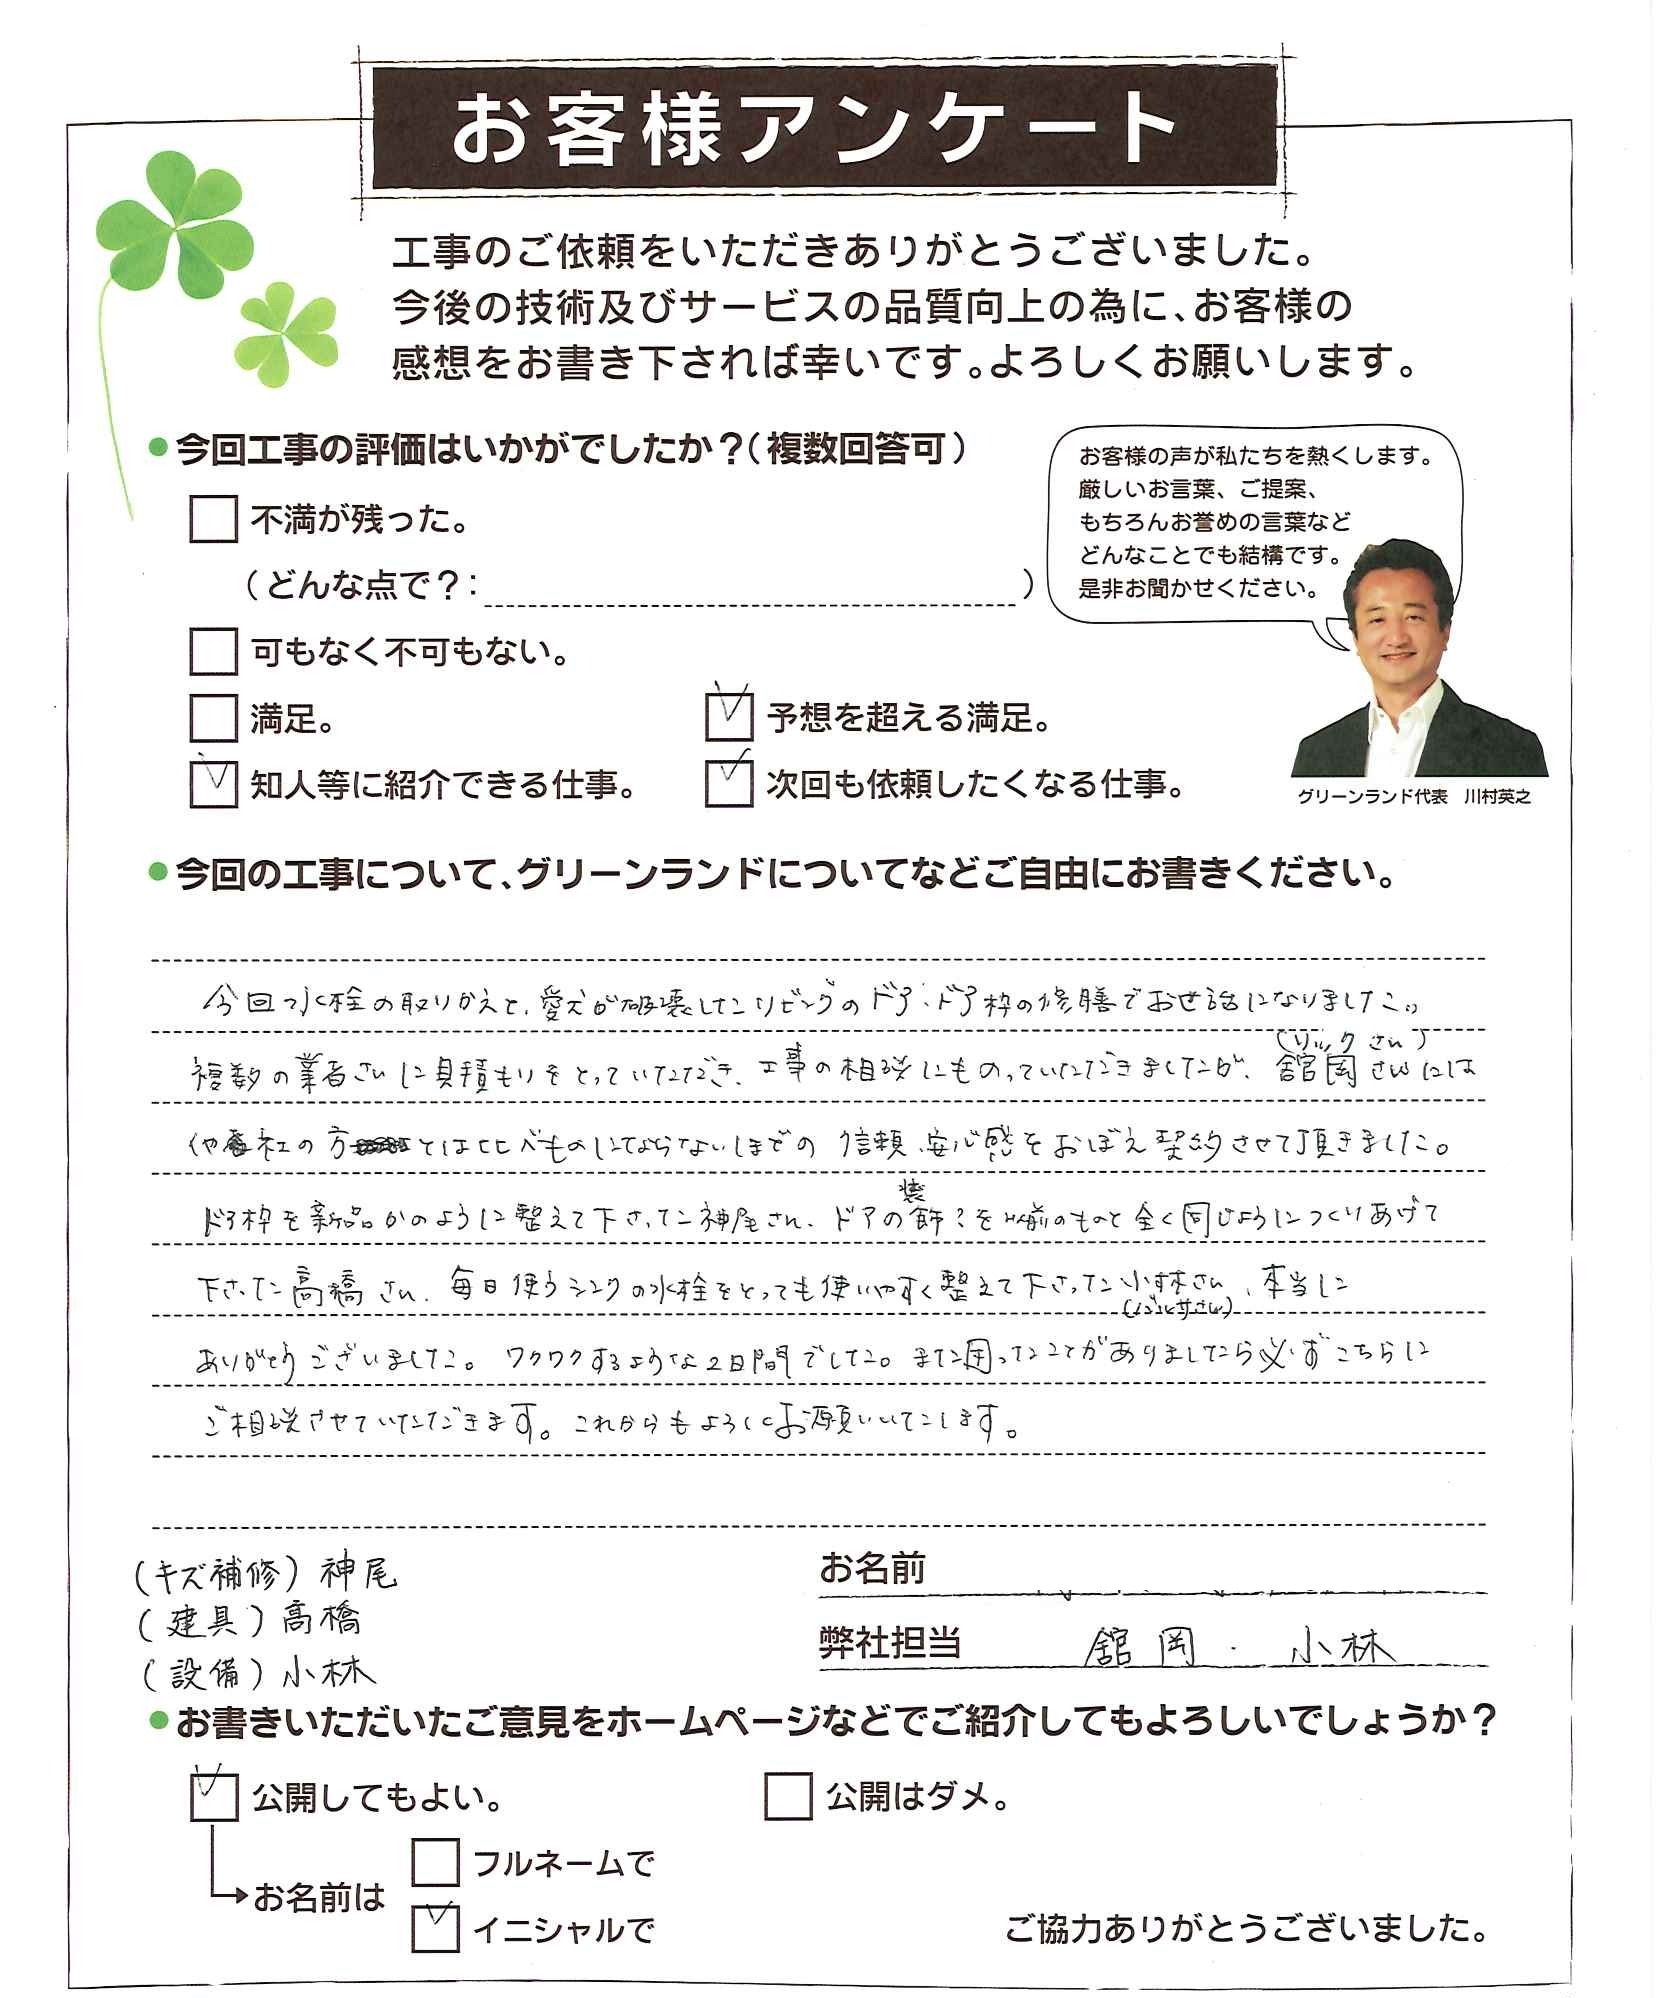 お客様アンケート
工事のご依頼をいただきありがとうございました。
今後の技術及びサービスの品質向上の為に、お客様の
感想をお書き下されば幸いです。よろしくお願いします。
●今回工事の評価はいかがでしたか？（複数回答可）
不満が残った。
（どんな点で？：　）
可もなく不可もない。
満足。
予想を超える満足。
知人等に紹介できる仕事。
次回も依頼したくなる仕事。
お客様の声が私たちを熱くします。
厳しいお言葉、ご提案、
もちろんお誉めの言葉など
どんなことでも結構です。
是非お聞かせください。
グリーンランド代表　川村英之
●今回の工事について、グリーンランドについてなどご自由にお書きください。
今回水栓の取りかえと、愛犬が破壊したリビングのドア・ドア枠の修膳でお世話になりました。
複数の業者さんに見積もりをとっていただき、工事の相談にものっていただきましたが、舘岡さん(リックさん)には
他社の方とは比べものにならないほどの信頼、安心感をおぼえ契約させて頂きました。
ドア枠を新品かのように整えて下さった神尾さん、ドアの装飾を以前のものと全く同じようにつくりあげて
下さった高橋さん、毎日使うシンクの水栓をとっても使いやすく整えて下さった小林さん、本当に
ありがとうございました。ワクワクするような2日間でした。また困ったことがありましたら必ずこちらに
ご相談させていただきます。これからもよろしくお願いいたします。
(キズ補修) 神尾
(建具) 高橋
(設備) 小林
お名前
弊社担当　舘岡・小林
●お書きいただいたご意見をホームページなどでご紹介してもよろしいでしょうか？
公開してもよい。
公開はダメ。
お名前は
フルネームで
イニシャルで
ご協力ありがとうございました。